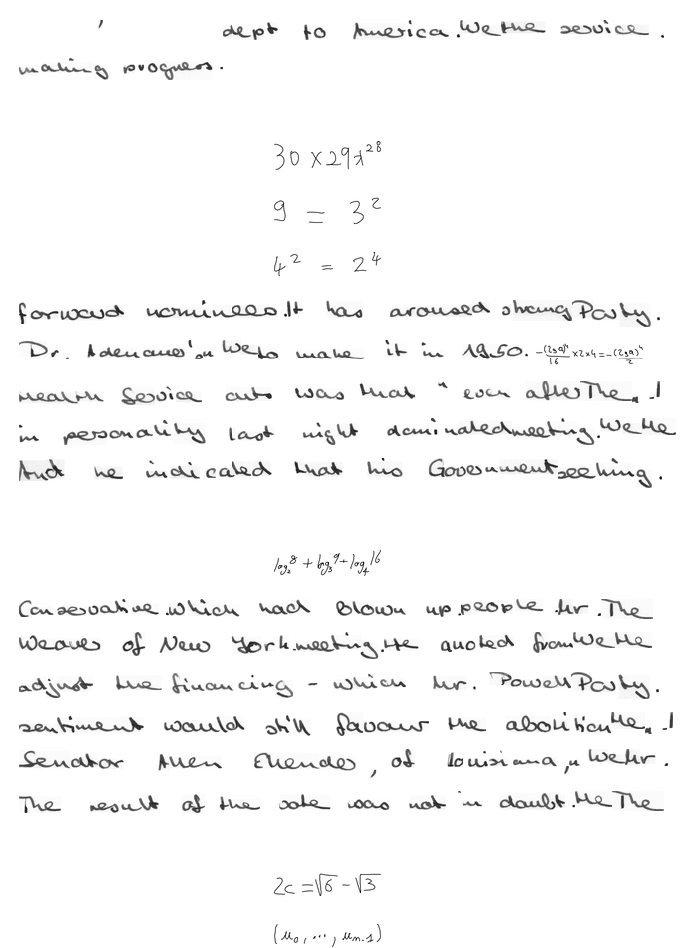 ' dept to America. We the service.
making progress.
30 × 29x^28
9 = 3^2
4^2 = 2^4
forward nominees. It has aroused strong Party.
Dr. Adenauer' on We to make it in 1950. -(2sa)^4/16 × 2 × 4 = -(2sa)^4/2
Health Service cuts was that " even after The " !
in personality last night dominated meeting. We He
And he indicated that his Government seeking.
log_2 8 + log_3 9 + log_4 16
Conservative. which had blown up. people. Mr. The
Weaver of New York. meeting. He quoted from We He
adjust the financing - which Mr. Powell Party.
sentiment would still favour the abolition He " !
Senator Allen Ellender, of Louisiana, " We Mr.
The result of the vote was not in doubt. He The
2c = √6 - √3
(u_0, ..., u_{n-1})